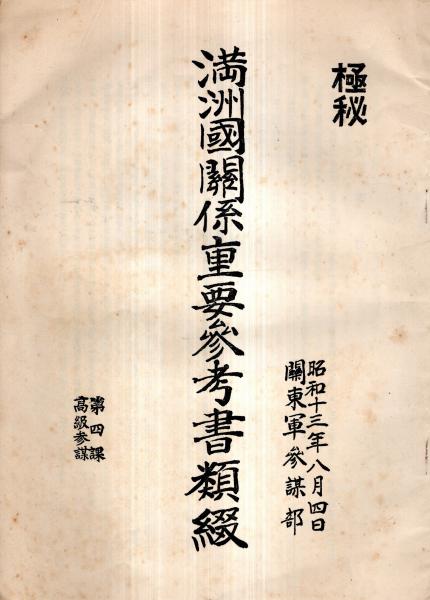 極秘
満洲國關係重要參考書類綴
昭和十三年八月四日
關東軍參謀部
第四課
高級参謀